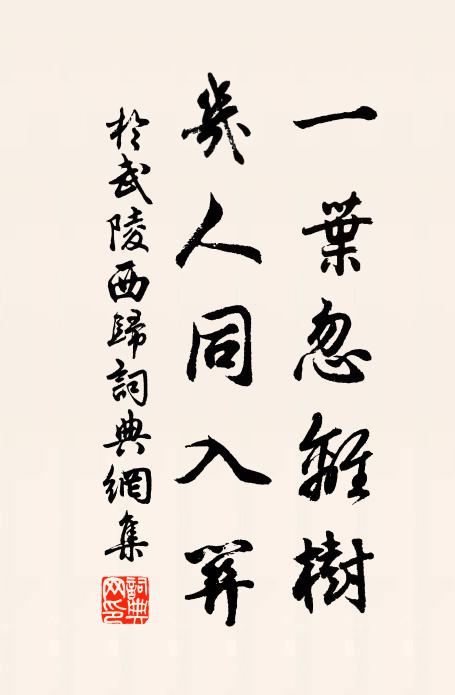 一葉忽離樹
幾人同入關
於武陵西歸詞典網集
詞典
网印